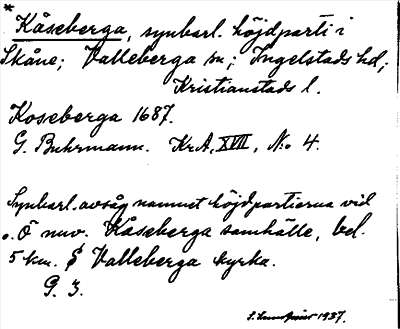 *
Kåseberga, synbarl. höjdparti i
Skåne; Valleberga sn; Ingelstads hd;
Kristianstads l.
Koseberga 1687.
G. Buhrmann. KrA, XVII, N:o 4.
Synbarl. avsåg namnet höjdpartierna vid
o. Ö nuv. Kåseberga samhälle, bel.
5 km. S Valleberga kyrka.
G. 3.
1937.